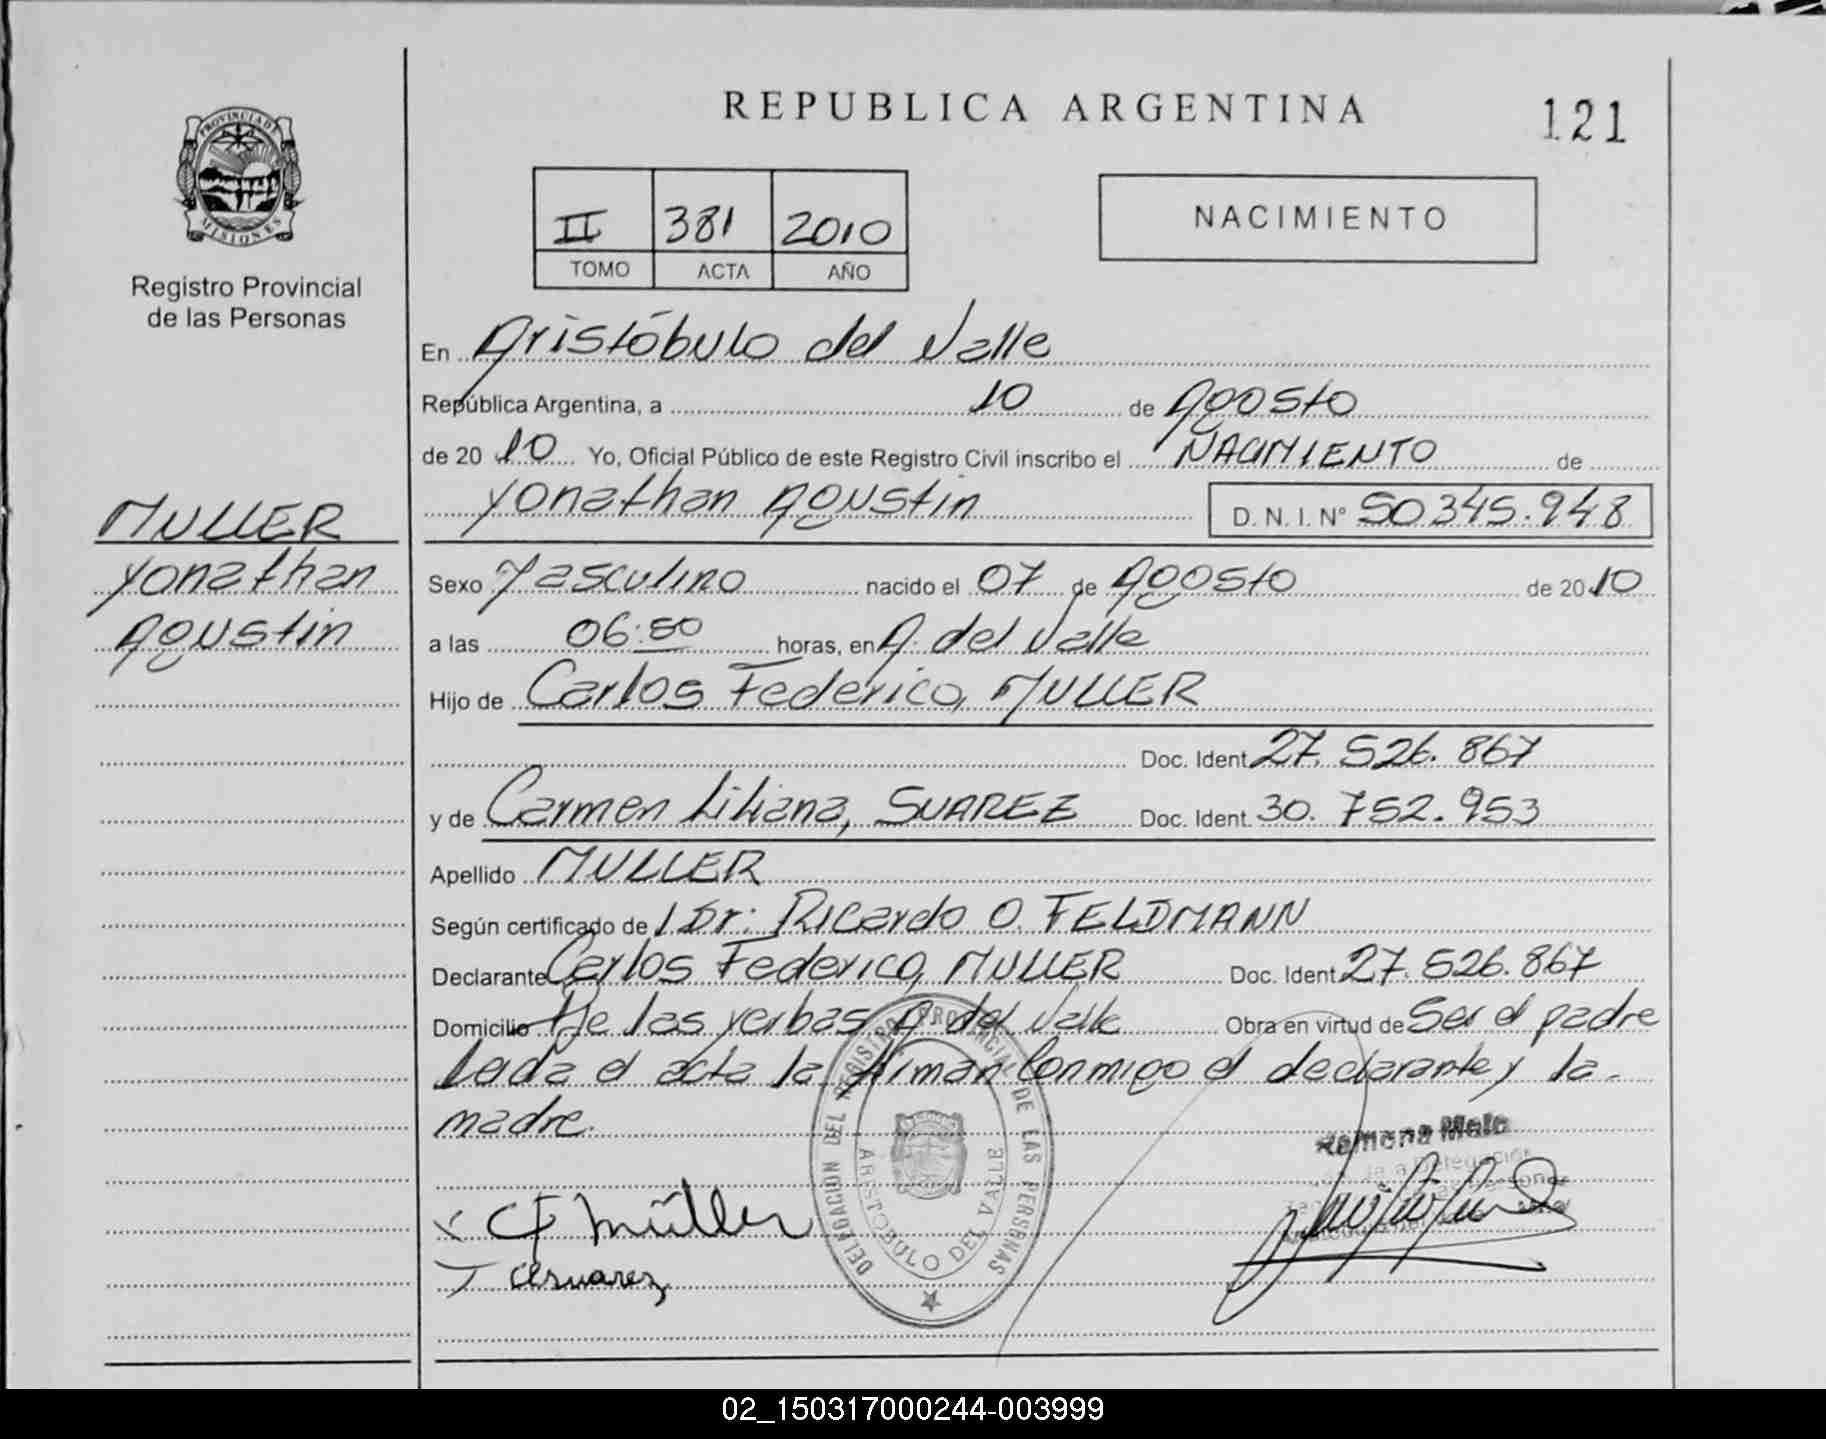 REPUBLICA ARGENTINA
121
PROVINCIA DE
MISIONES
Registro Provincial
de las Personas
II 381 2010
TOMO ACTA AÑO
NACIMIENTO
En Aristóbulo del Valle
República Argentina, a 10 de Agosto
de 20 10 Yo, Oficial Público de este Registro Civil inscribo el NACIMIENTO de
Yonathan Agustin D. N. I. Nº 50345.948
MULLER
Yonathan
Agustin
Sexo Masculino nacido el 07 de Agosto de 20 10
a las 06:50 horas, en A. del Valle
Hijo de Carlos Federico, MULLER
Doc. Ident. 27. 526. 867
y de Carmen Liliana, SUAREZ Doc. Ident. 30. 752. 953
Apellido MULLER
Según certificado de / Dr: Ricardo O. FELDMANN
Declarante Carlos Federico, MULLER Doc. Ident. 27. 526. 867
Domicilio de las yerbas A. del Valle Obra en virtud de Ser el padre
Leida el acta la firman Conmigo el declarante y la
madre.
DELEGACION DEL REGISTRO PROVINCIAL DE LAS PERSONAS
ARISTOBULO DEL VALLE
Ramona Melo
CF Müller
CLSuarez
02_150317000244-003999